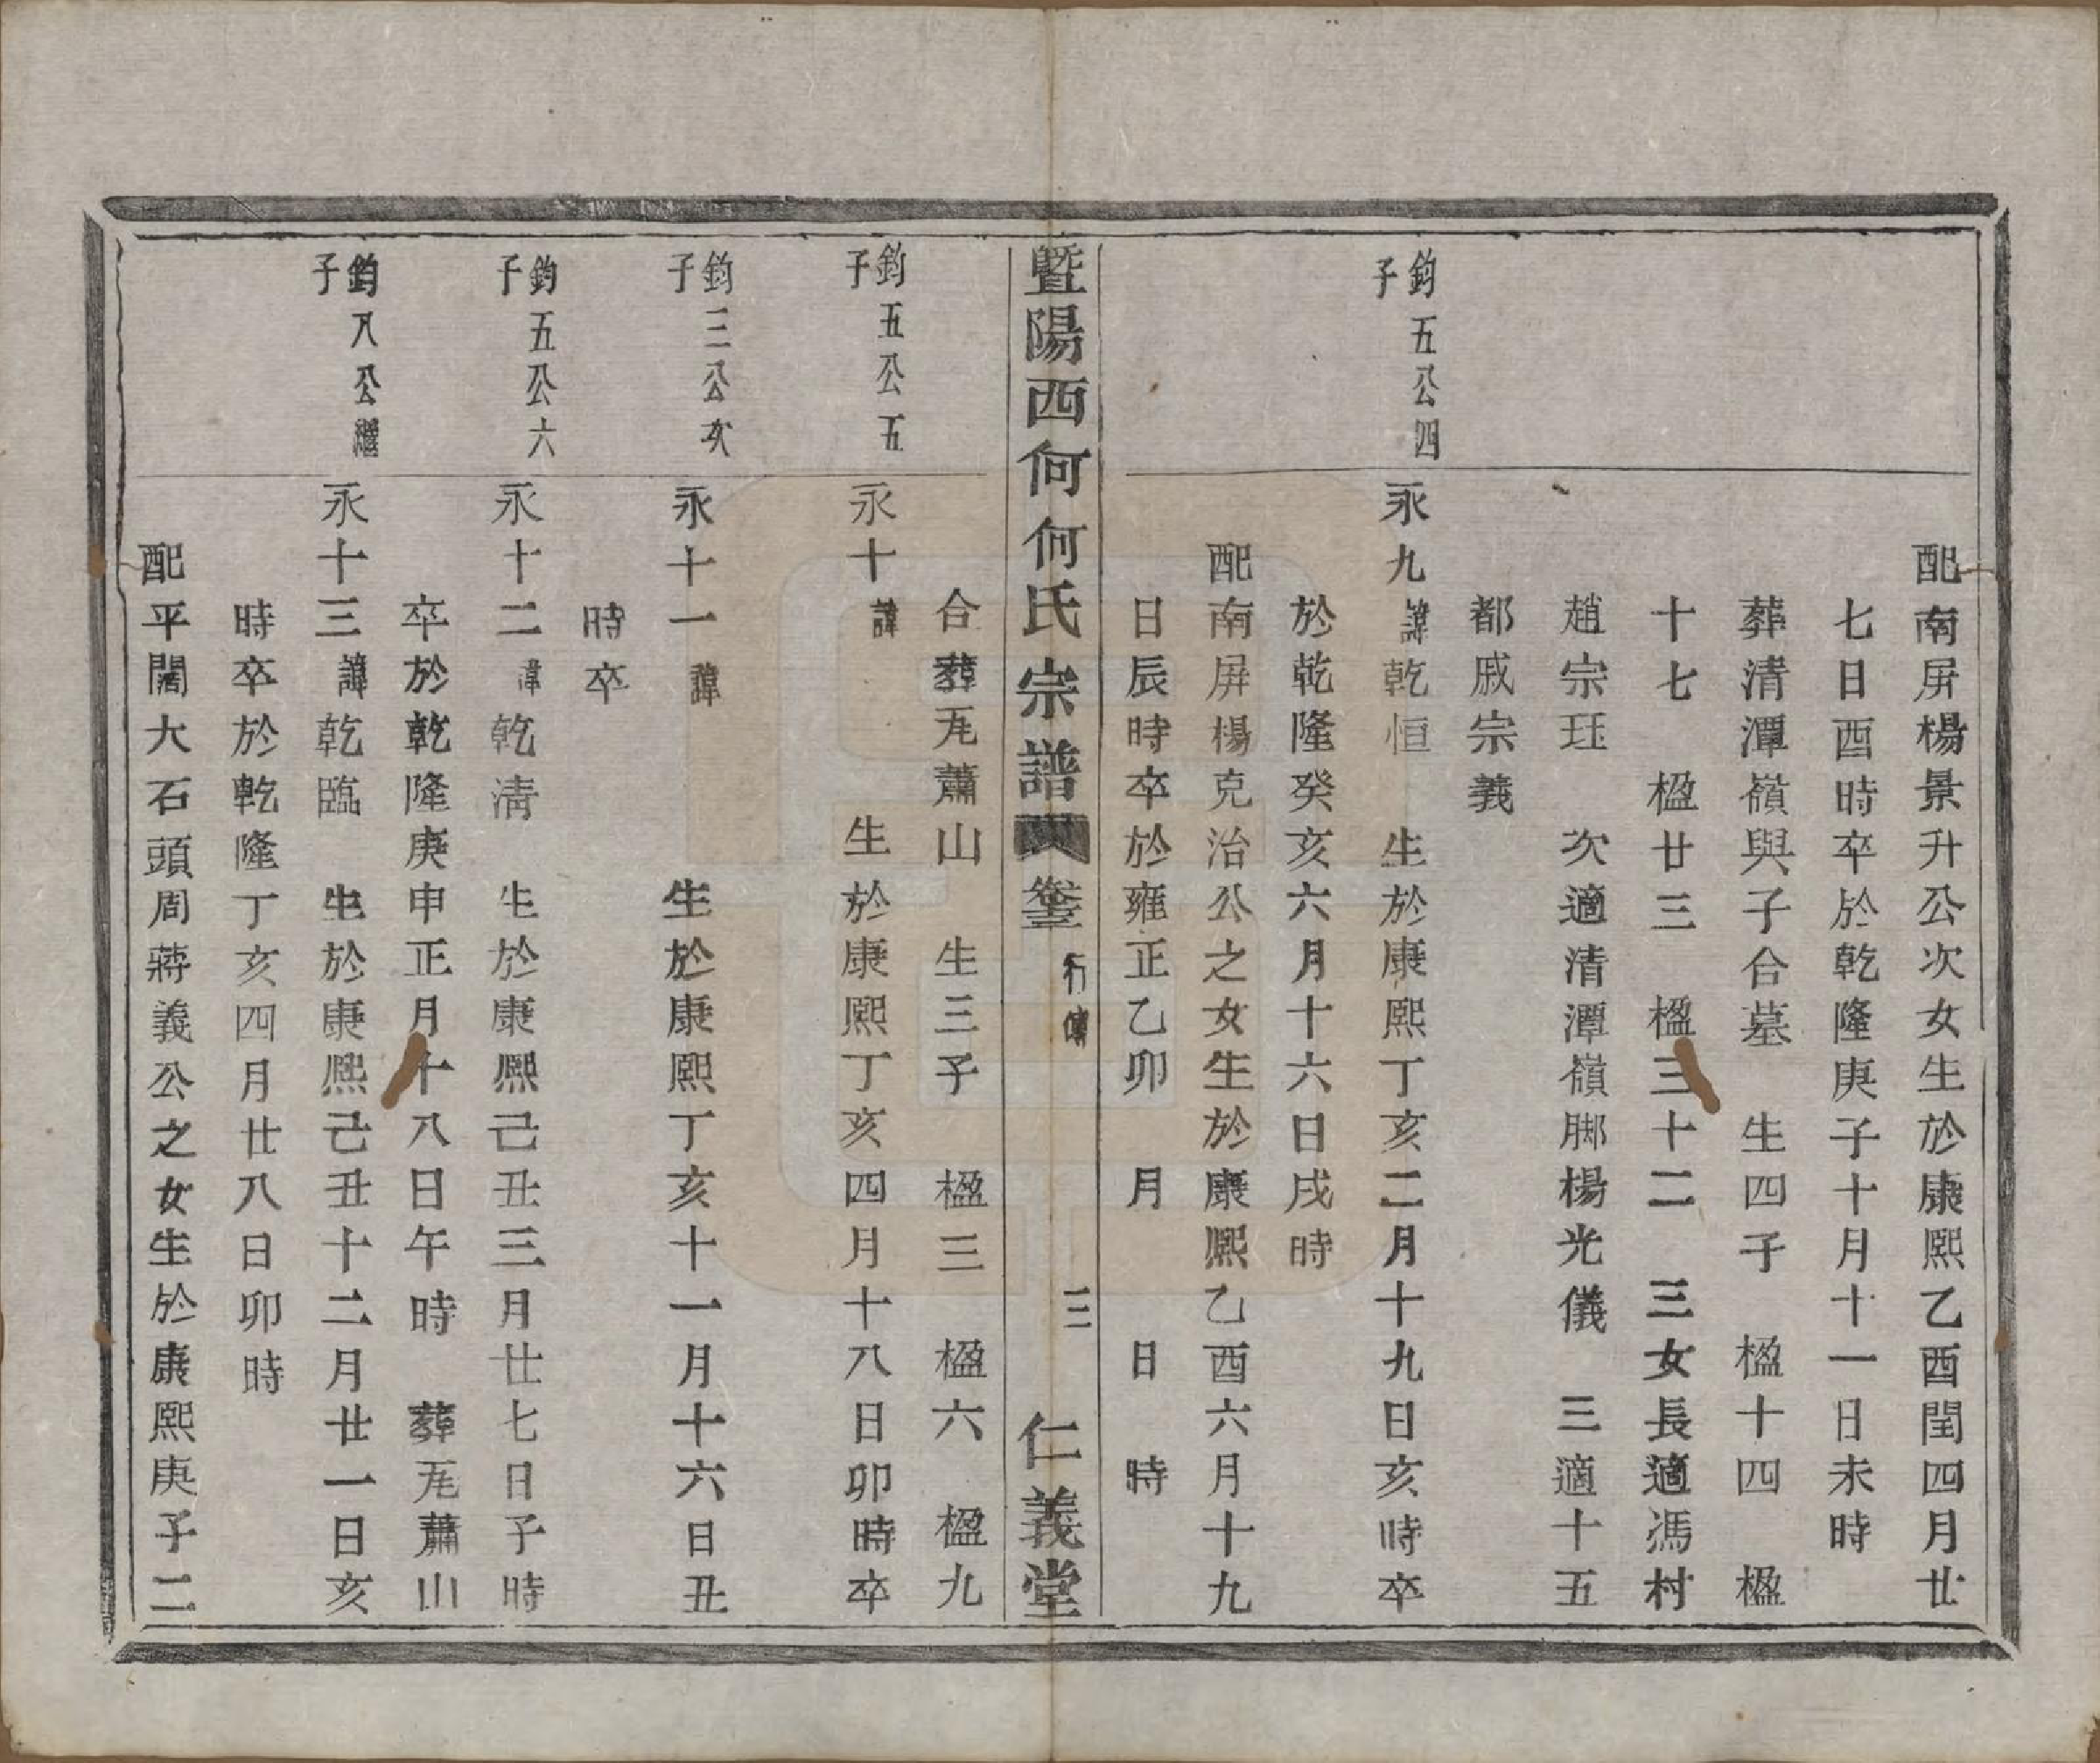 配南屏楊景升公次女生於康熙乙酉閏四月廿
七日酉時卒於乾隆庚子十月十一日未時
葬清潭嶺與子合墓 生四子 楹十四 楹
十七 楹廿三 楹三十二 三女長適馮村
趙宗珏 次適清潭嶺脚楊光儀 三適十五
都戚宗義
鈞五公四
子
永九 諱乾恒 生於康熙丁亥二月十九日亥時卒
於乾隆癸亥六月十六日戌時
配南屏楊克治公之女生於康熙乙酉六月十九
日辰時卒於雍正乙卯 月 日 時
暨陽西何何氏宗譜 卷三 行傳 三 仁義堂
合葬旄蕭山 生三子 楹三 楹六 楹九
鈞五公五
子
永十 諱 生於康熙丁亥四月十八日卯時卒
鈞三公次
子
永十一 諱 生於康熙丁亥十一月十六日丑
時卒
鈞五公六
子
永十二 諱乾淸 生於康熙己丑三月廿七日子時
卒於乾隆庚申正月十八日午時 葬旄蕭山
鈞八公繼
子
永十三 諱乾臨 生於康熙己丑十二月廿一日亥
時卒於乾隆丁亥四月廿八日卯時
配平闊大石頭周蔣義公之女生於康熙庚子二